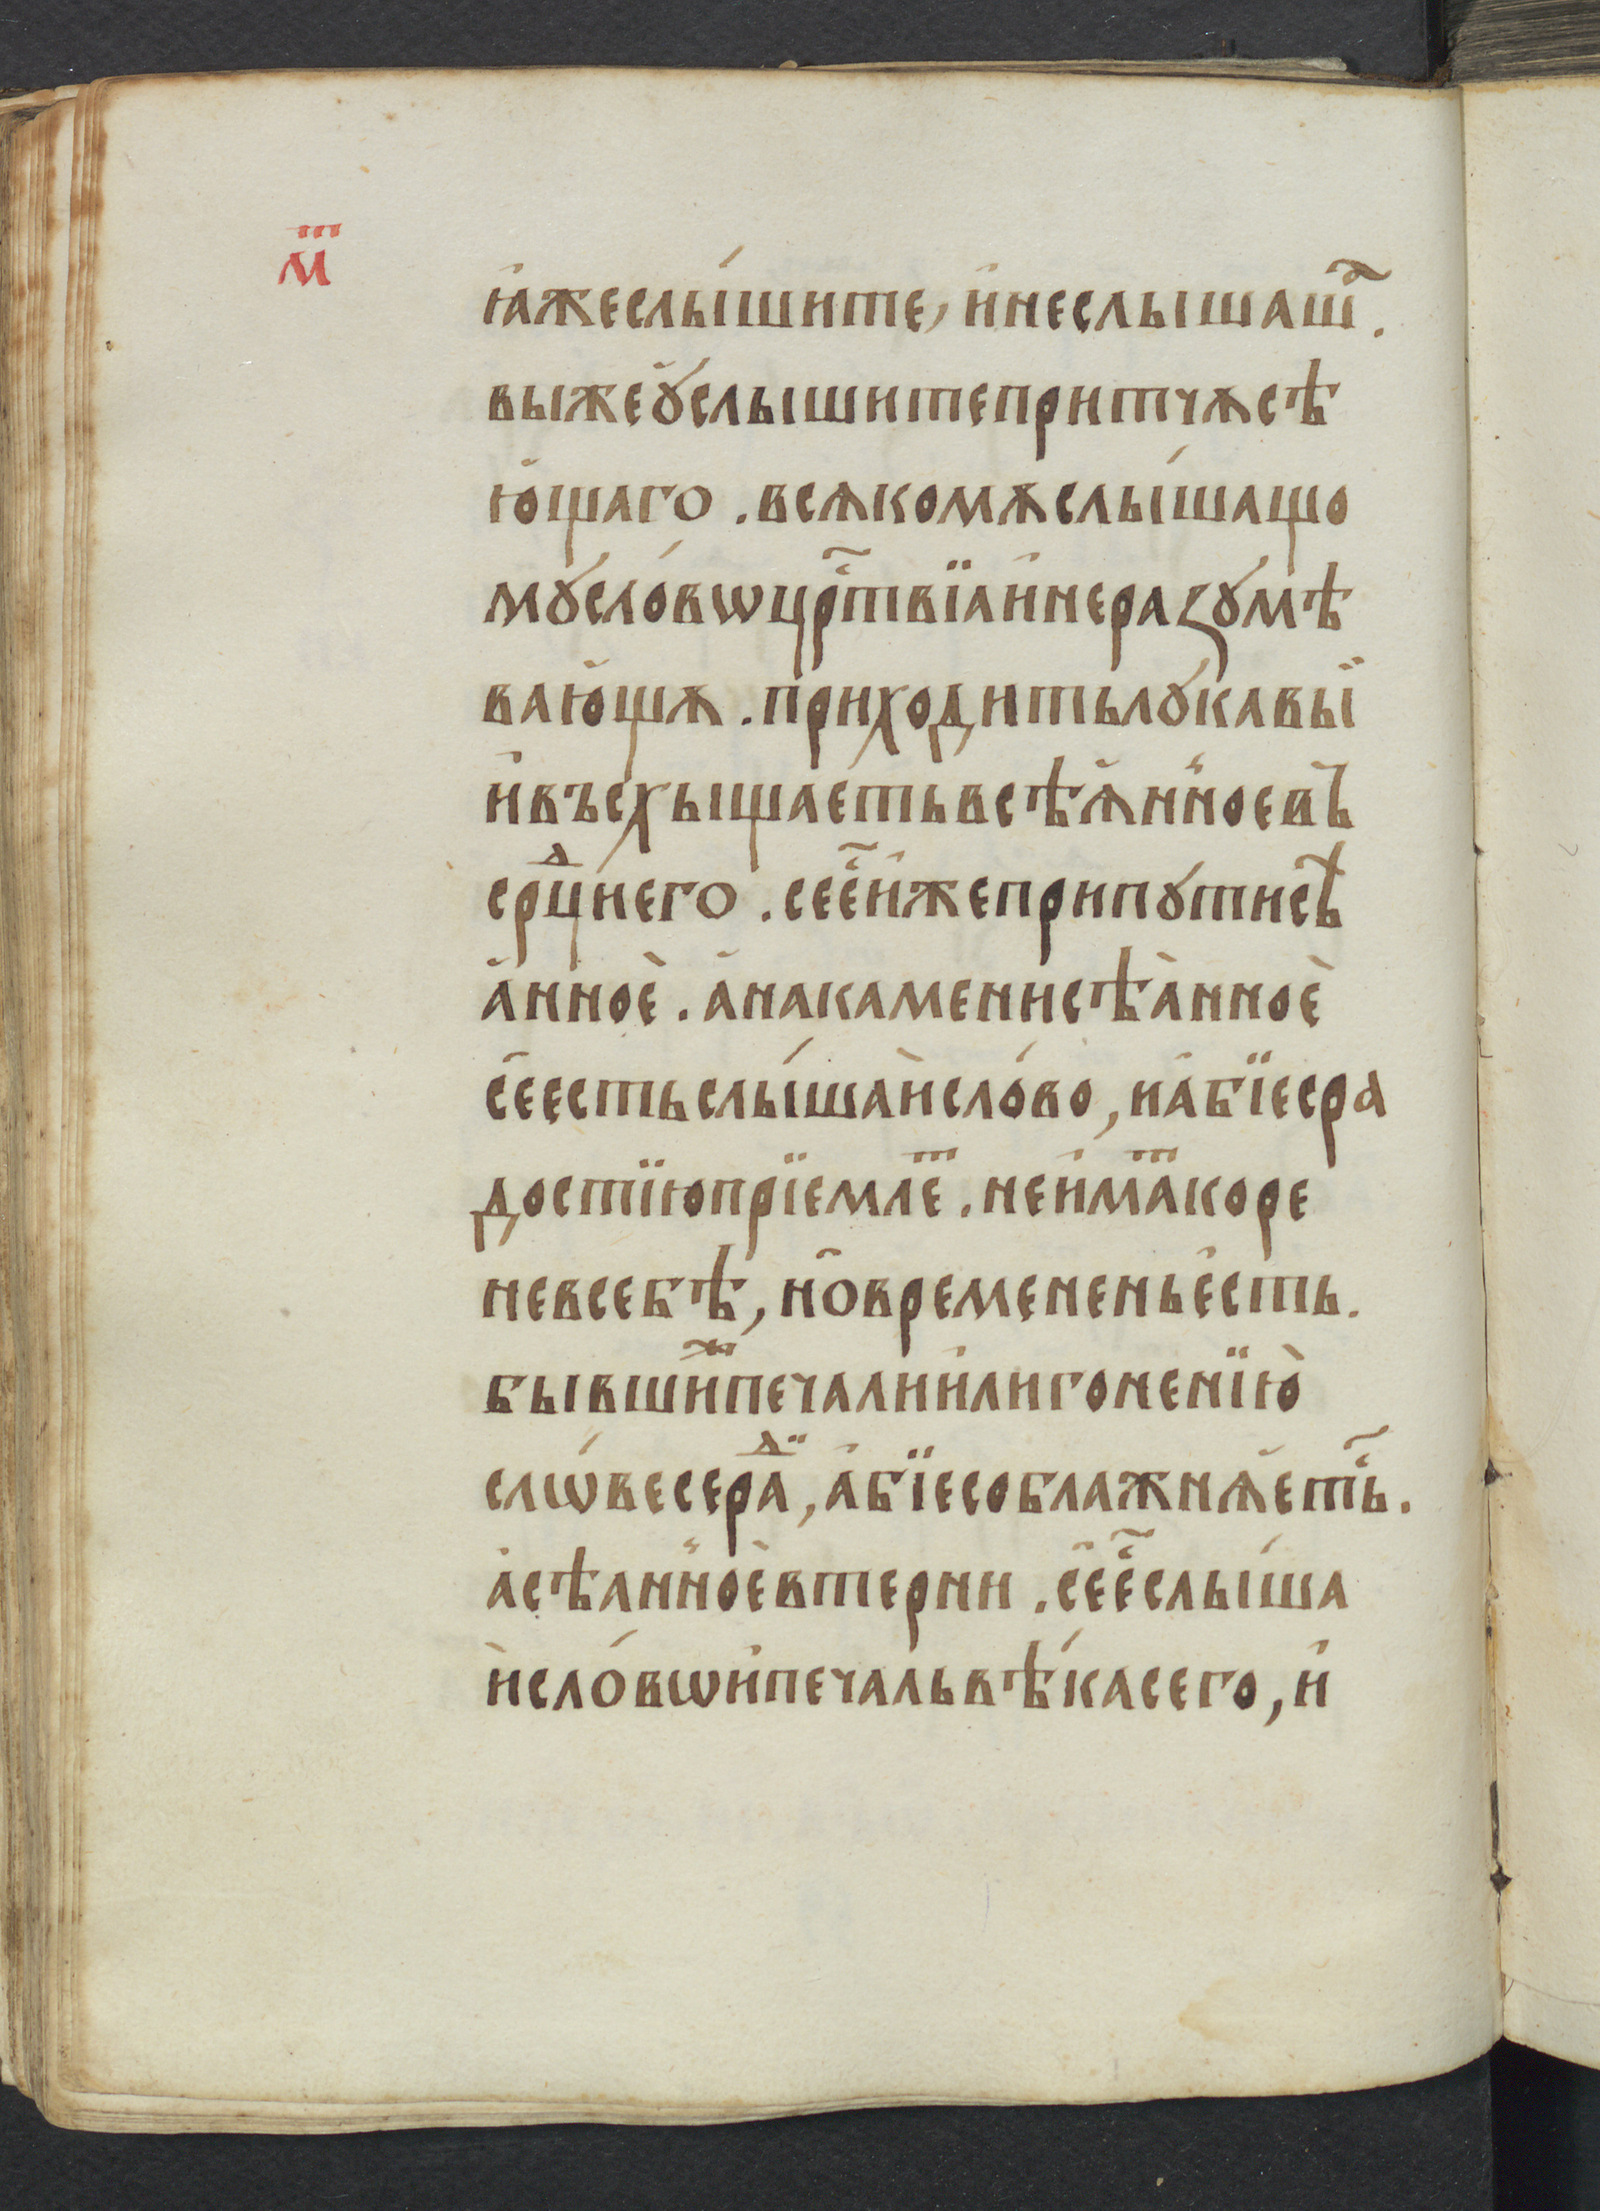 м҃ т
ꙗ҆же слы́шите, и҆ не слышаш҃ .
вы же ѹ҆слышите притчѫ сѣ
ю҆щаго . всѧкомѫ слы́шащо
мꙋ сло́вѡ цр҇твїа и҆ не разꙋмѣ
ваю҆щѫ . приходить лꙋкавы́ї
и҆ въсхыщае҆ть всѣѧ҆нное в̾
ср҇ци е҆го . се е҇ и҆же при пꙋти сѣ
а҆нноѐ . а҆ на камени сѣа̀нноѐ
се̑ есть слы́шаѝ сло́во, и а҆бїе с ра
достїю прїемле҇т . не и҆ма҇т коре
не в себѣ, но̑ временень е҆сть .
бывши҇ж печали и҆ли гоненїю̀
слѡ́весе ра҇ди, а҆бїе соблажнѧ҆еть҇ .
а҆ сѣанноѐ в терни . се̑ е҇ слы́ша
ѝ сло́вѡ и҆ печаль вѣ́ка сего, и҆